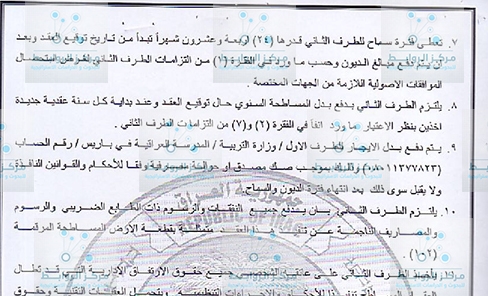 ٧. تعطى فترة سماح للطرف الثاني قدرها (٢٤) اربعة وعشرون شهراً تبدأ من تاريخ توقيع العقد وبعد
ان يتم دفع مبالغ الديون وحسب ما ورد في الفقرة (١) من التزامات الطرف الثاني لغرض استحصال
الموافقات الاصولية اللازمة من الجهات المختصة .
٨. يلتزم الطرف الثاني بدفع بدل المساطحة السنوي حال توقيع العقد وعند بداية كل سنة عقدية جديدة
اخذين بنظر الاعتبار ما ورد انفاً في الفقرة (٢) و(٧) من التزامات الطرف الثاني .
٩. يتم دفع بدل الايجار للطرف الاول / وزارة التربية / المدرسة العراقية في باريس / رقم الحساب
وذلك بموجب صك مصدق او حوالة مصرفية وفقا للأحكام والقوانين النافذة
ولا يقبل سوى ذلك بعد انتهاء فترة الديون والسماح.
١٠. يلتزم الطرف الثاني بان يدفع جميع النفقات والرسوم ذات الطابع الضريبي والرسوم
والمصاريف الناجمة عن هذا العقد متمثلة بقطعة الأرض المساطحة المرقمة
(٢ و١).
الطرف الثاني على عاتقه الشخصي جميع حقوق الارتفاق الادارية التي قد تطال
العقبات التقنية وحقوق